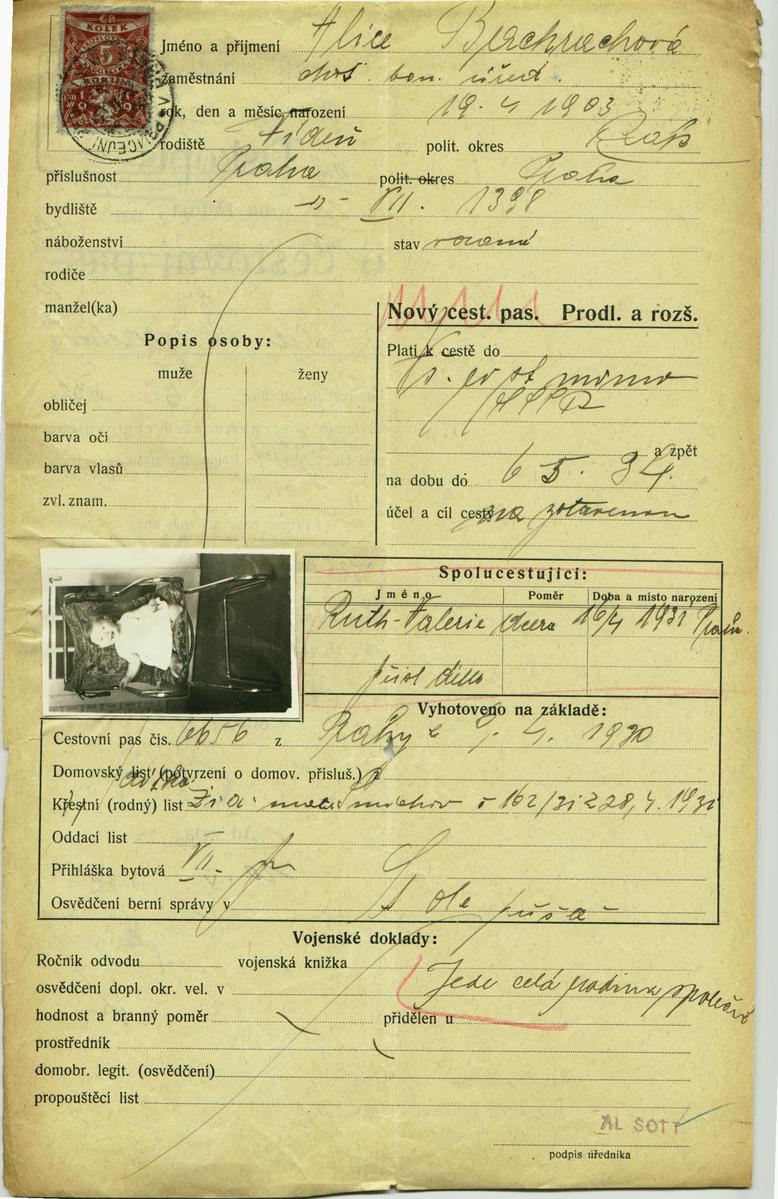 KOLEK
5
Jméno a příjmení Alice Bachrachová
zaměstnání chot. ban. úřed.
rok, den a měsíc narození 19. 4 1903
rodiště Vídeň polit. okres Rak
příslušnost Praha polit. okres Praha
bydliště -"- VII. 1398
náboženství stav vdaná
rodiče
manžel(ka)
Nový cest. pas. Prodl. a rozš.
Popis osoby:
muže ženy
obličej
barva očí
barva vlasů
zvl. znam.
Platí k cestě do
mimo
a zpět
na dobu do 6 5. 34.
účel a cíl cesty na zotavenou
Spolucestující:
Jméno Poměr Doba a místo narození
Ruth-Valerie dcera 16/4 1931 Praha
přísl.
Vyhotoveno na základě:
Cestovní pas čís. 6656 z Prahy 1930
Domovský list (potvrzení o domov. přísluš.) z
Křestní (rodný) list Smíchov č 162/31 z 28, 4. 1931
Oddací list
Přihláška bytová VII.
Osvědčení berní správy v
Vojenské doklady:
Ročník odvodu vojenská knížka
osvědčení dopl. okr. vel. v
Jede celá rodina společně
hodnost a branný poměr přidělen u
prostředník
domobr. legit. (osvědčení)
propouštěcí list
podpis úředníka